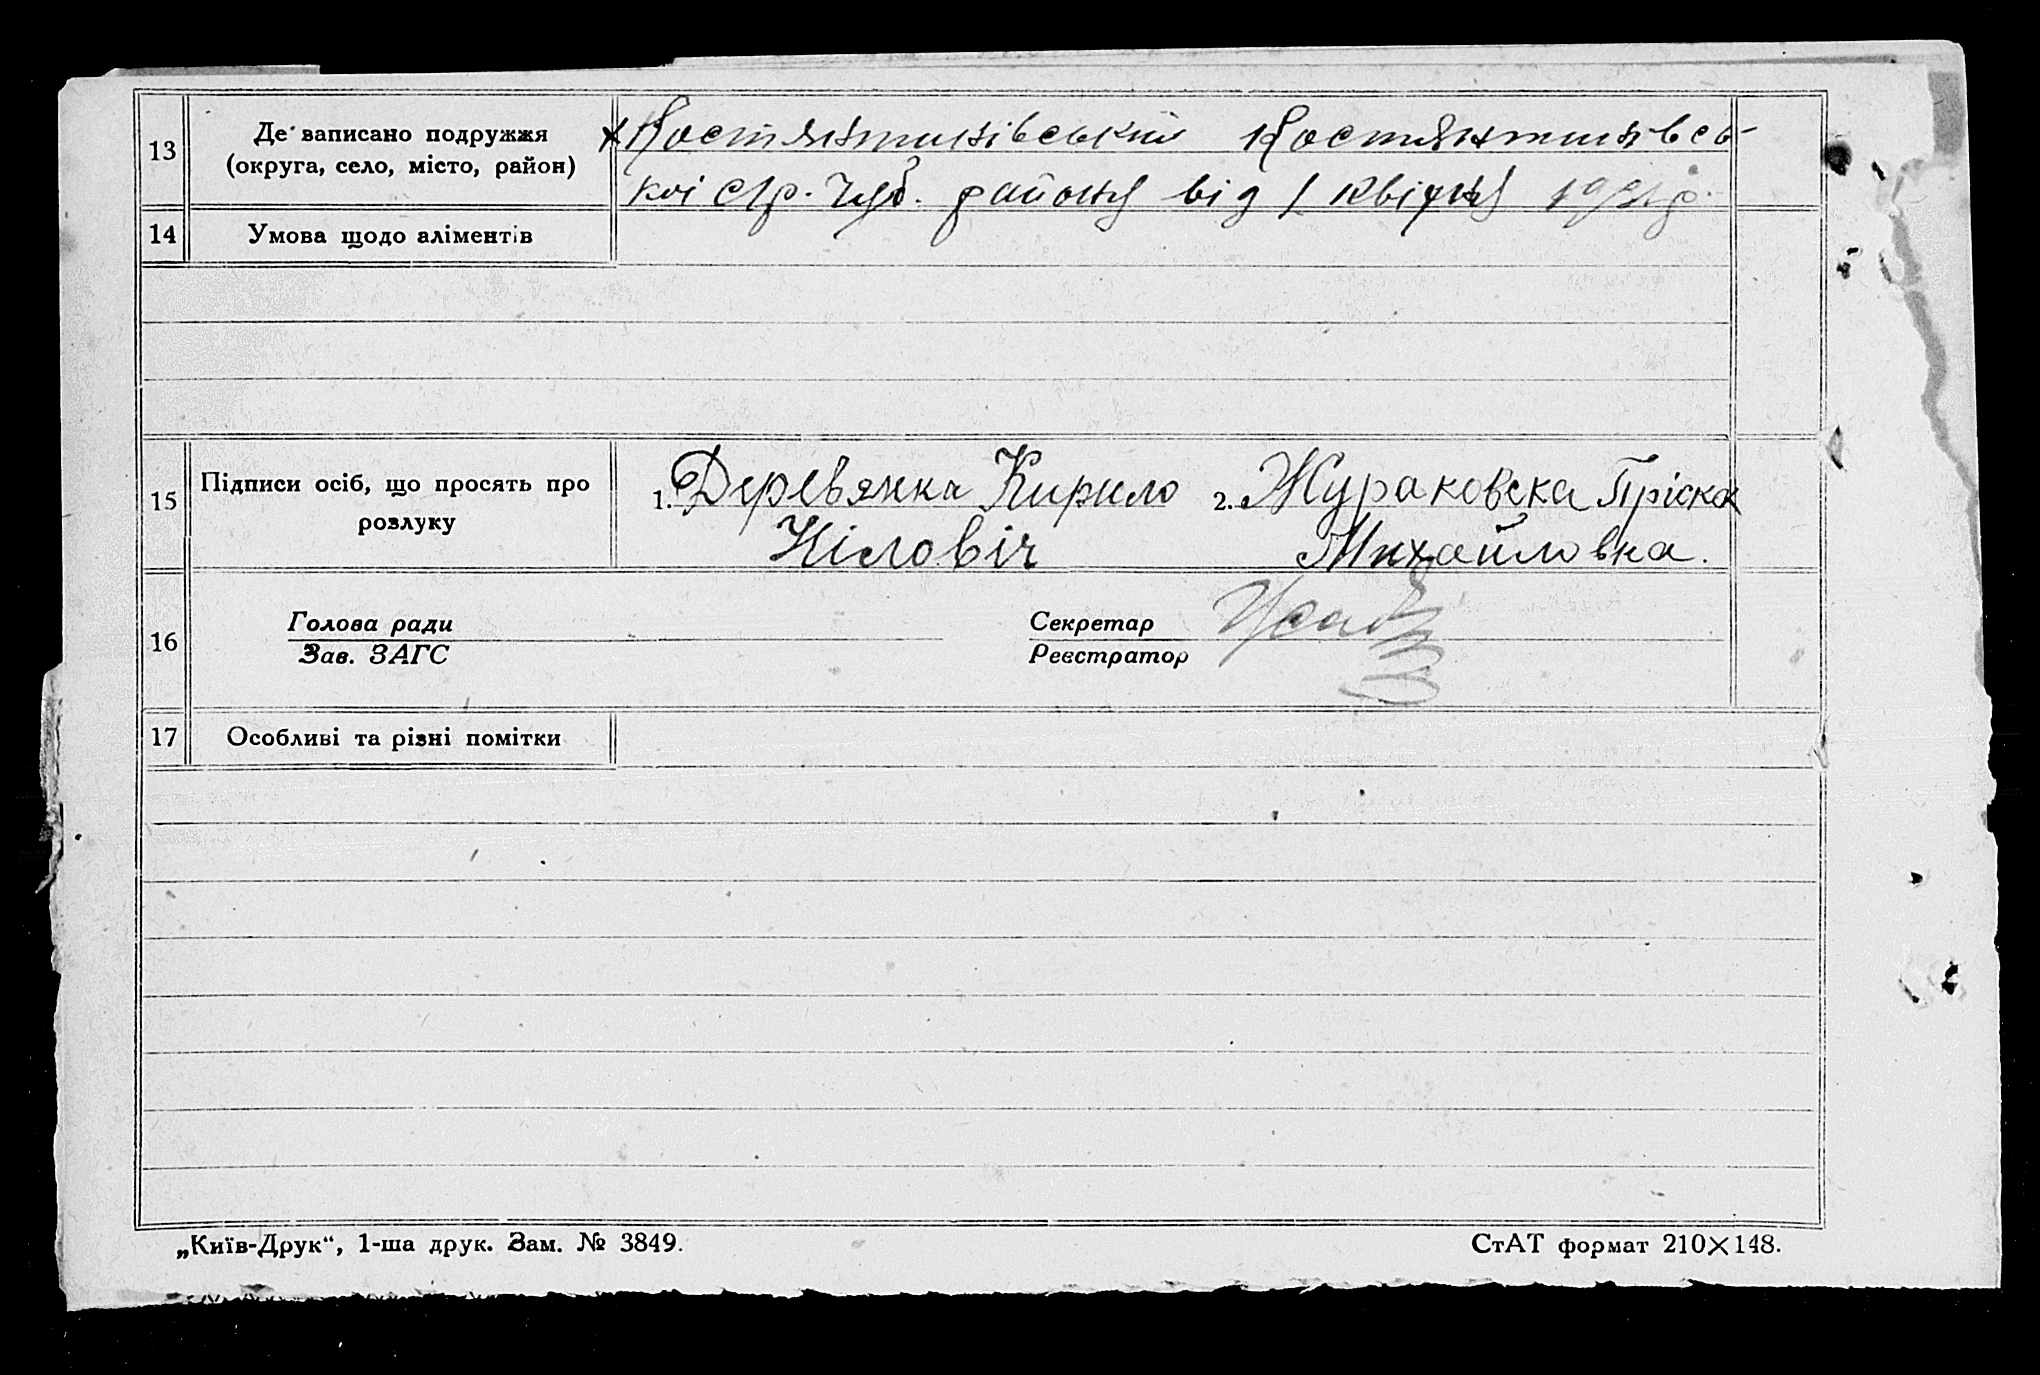 13
Де записано подружжя
(округа, село, місто, район)
Костянтинівський Костянтинівсь-
кої с/р. Чуб. району від 1 квітня
14
Умова щодо аліментів
15
Підписи осіб, що просять про
розлуку
1. Деревянка Кирило
Ніловіч
2. Жураковска Пріска
Михайловна.
16
Голова ради
Зав. ЗАГС
Секретар
Реєстратор
17
Особливі та різні помітки
„Київ-Друк“, 1-ша друк. Зам. № 3849.
СтАТ формат 210×148.